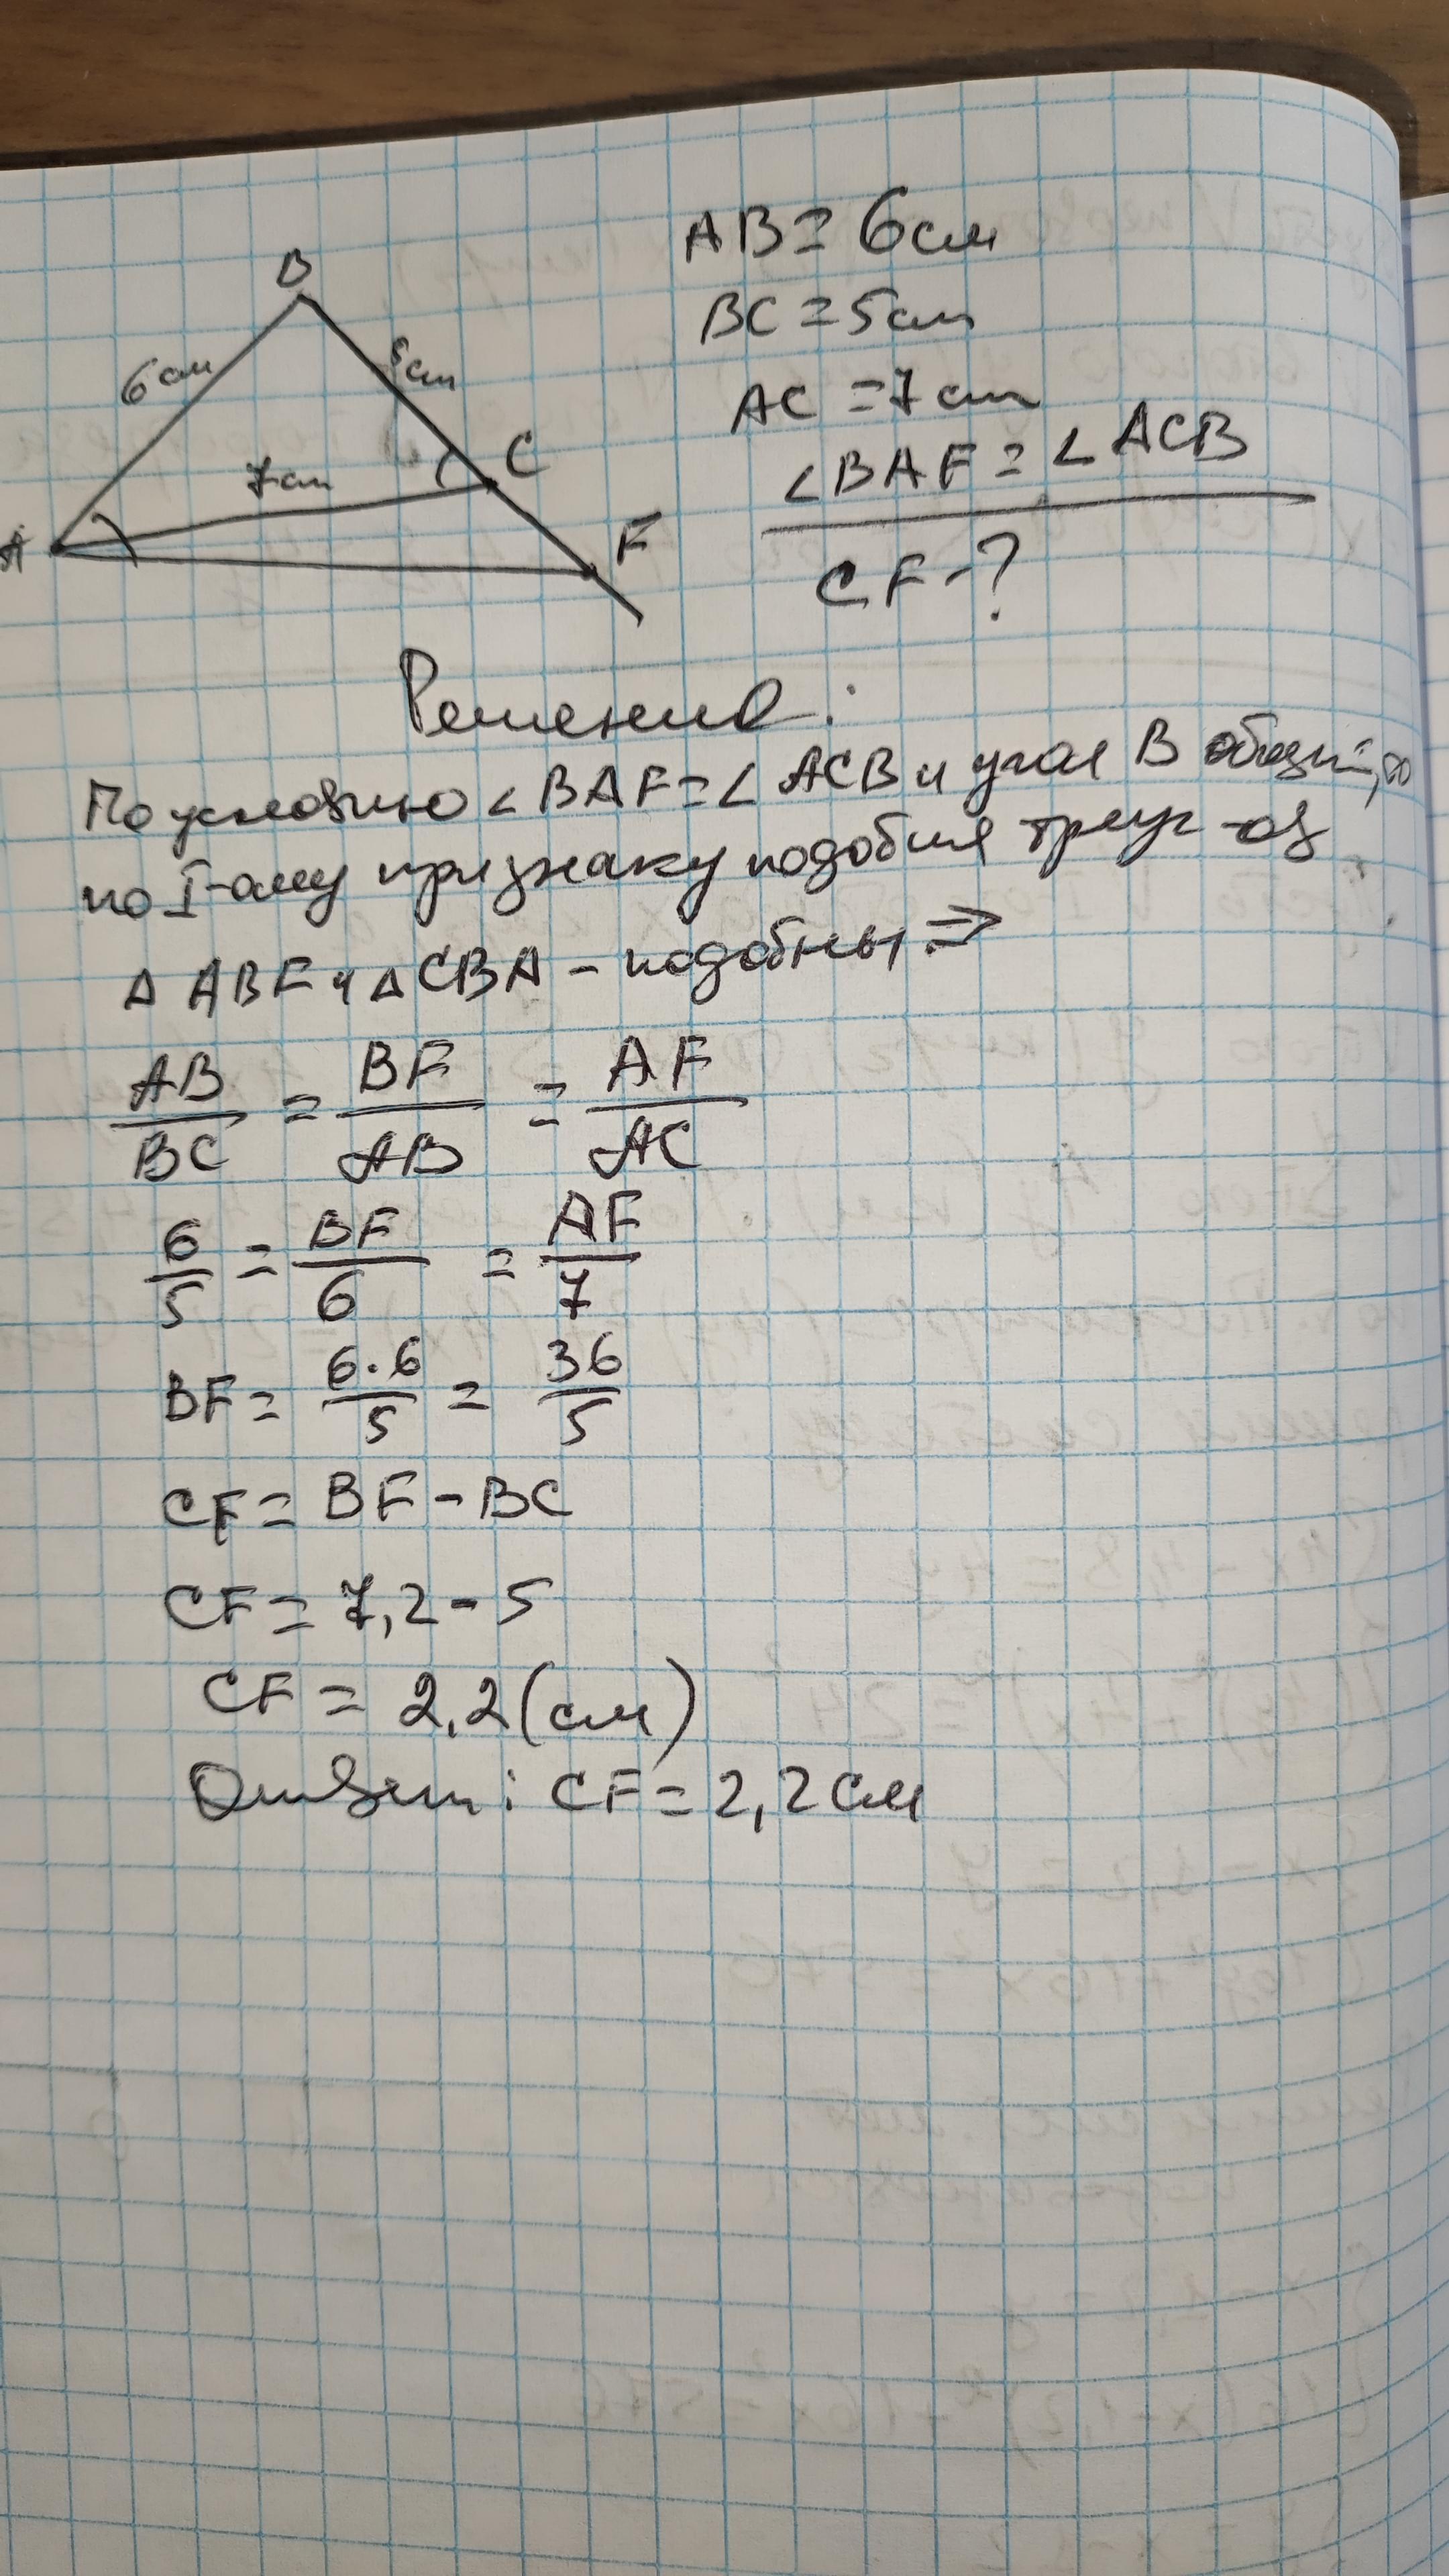 B
6 см
5см
7см
C
A
F
AB = 6см
BC = 5см
AC = 7см
∠BAF = ∠ACB
CF - ?
Решение:
По условию ∠BAF = ∠ACB и угол B общий, то
по I-ому признаку подобия треуг-ов
△ABF и △CBA - подобны ⇒
AB/BC = BF/AB = AF/AC
6/5 = BF/6 = AF/7
BF = 6·6/5 = 36/5
CF = BF - BC
CF = 7,2 - 5
CF = 2,2 (см)
Ответ: CF = 2,2 см